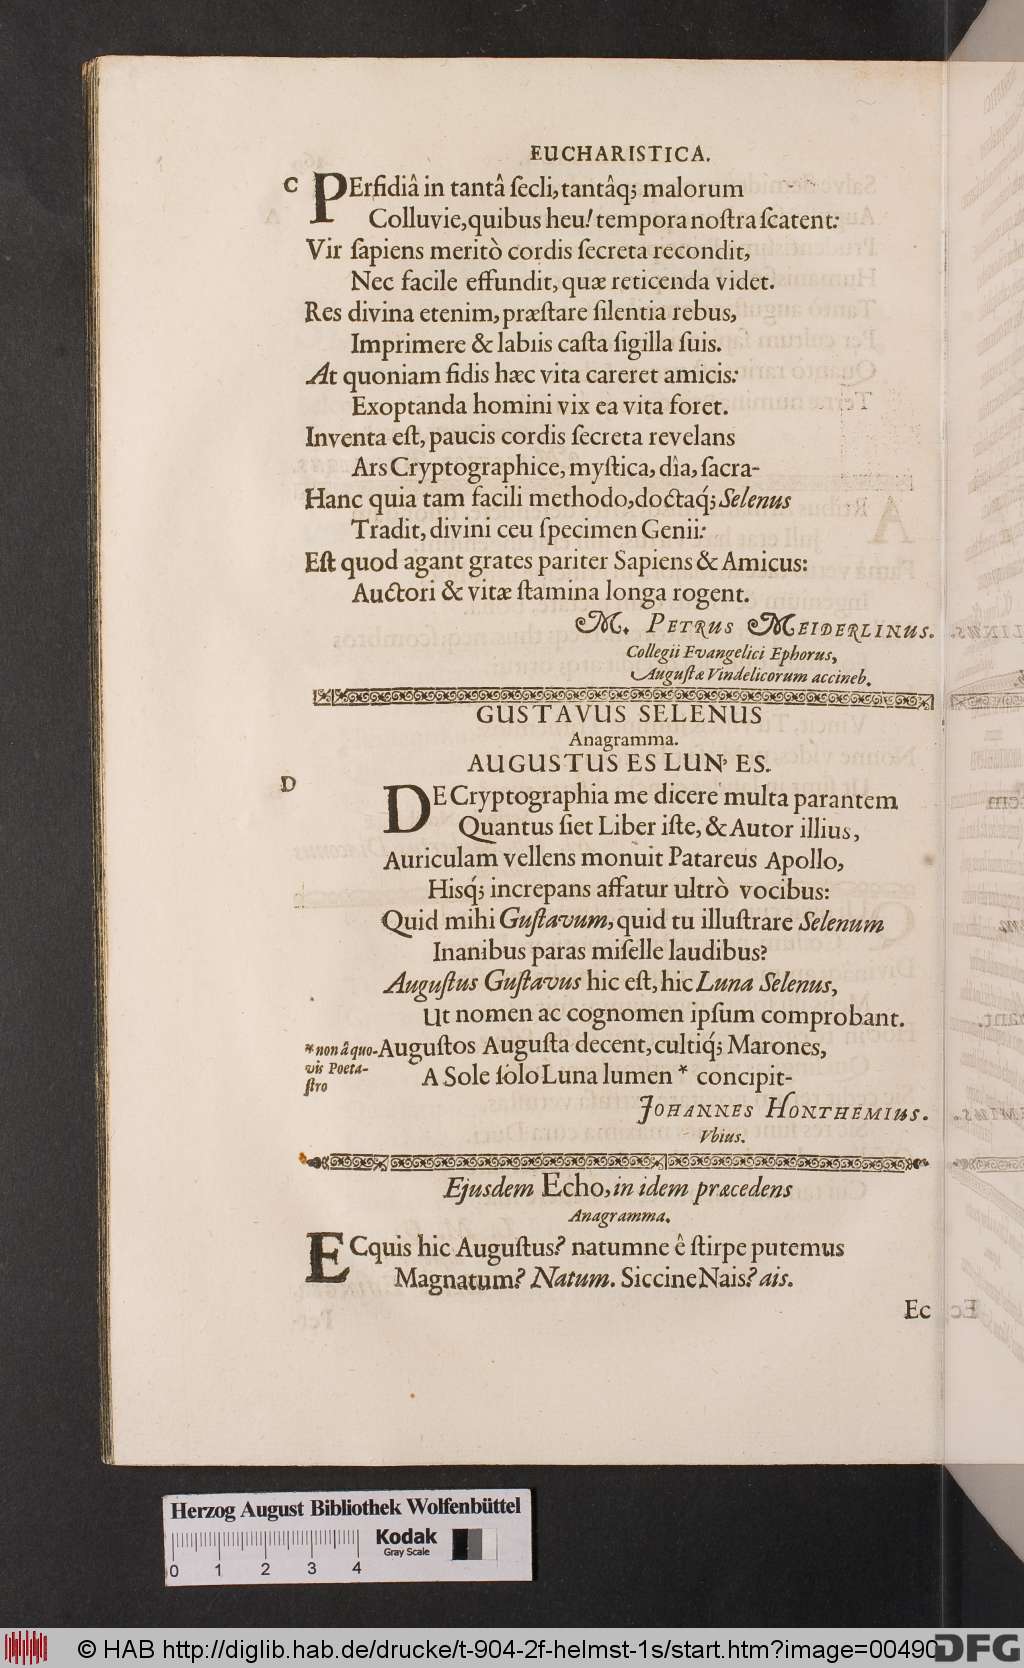 EUCHARISTICA.
C PErfidiâ in tantâ ſecli, tantâq; malorum
Colluvie, quibus heu! tempora noſtra ſcatent:
Vir ſapiens meritò cordis ſecreta recondit,
Nec facile effundit, quæ reticenda videt.
Res divina etenim, præſtare ſilentia rebus,
Imprimere & labiis caſta ſigilla ſuis.
At quoniam fidis hæc vita careret amicis:
Exoptanda homini vix ea vita foret.
Inventa eſt, paucis cordis ſecreta revelans
Ars Cryptographice, myſtica, dîa, ſacra-
Hanc quia tam facili methodo, doctaq́; Selenus
Tradit, divini ceu ſpecimen Genii:
Eſt quod agant grates pariter Sapiens & Amicus:
Auctori & vitæ ſtamina longa rogent.
M. PETRUS MEIDERLINUS.
Collegii Evangelici Ephorus,
Auguſtæ Vindelicorum accineb.
GUSTAVUS SELENUS
Anagramma.
AUGUSTUS ES LUN' ES.
D DE Cryptographia me dicere multa parantem
Quantus ſiet Liber iſte, & Autor illius,
Auriculam vellens monuit Patareus Apollo,
Hisq́; increpans affatur ultrò vocibus:
Quid mihi Guſtavum, quid tu illuſtrare Selenum
Inanibus paras miſelle laudibus?
Auguſtus Guſtavus hic eſt, hic Luna Selenus,
Ut nomen ac cognomen ipſum comprobant.
Auguſtos Auguſta decent, cultiq́; Marones,
A Sole ſolo Luna lumen * concipit-
* non â quo-
vis Poeta-
ſtro
JOHANNES HONTHEMIUS.
Vbius.
Ejusdem Echo, in idem præcedens
Anagramma.
ECquis hic Auguſtus? natumne ê ſtirpe putemus
Magnatum? Natum. Siccine Nais? ais.
Ec
Herzog August Bibliothek Wolfenbüttel
0 1 2 3 4
Kodak
Gray Scale
© HAB http://diglib.hab.de/drucke/t-904-2f-helmst-1s/start.htm?image=00490
DFG